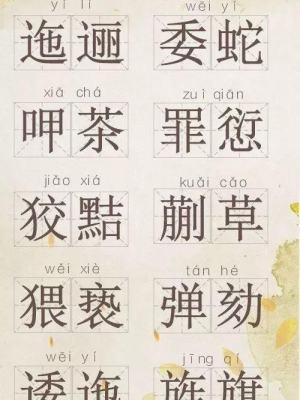 yǐ lǐ wēi yí
迤逦 委蛇
xiā chá zuì qiān
呷茶 罪愆
jiǎo xiá kuǎi cǎo
狡黠 蒯草
wěi xiè tán hé
猥亵 弹劾
wēi yí jīng qí
逶迤 旌旗